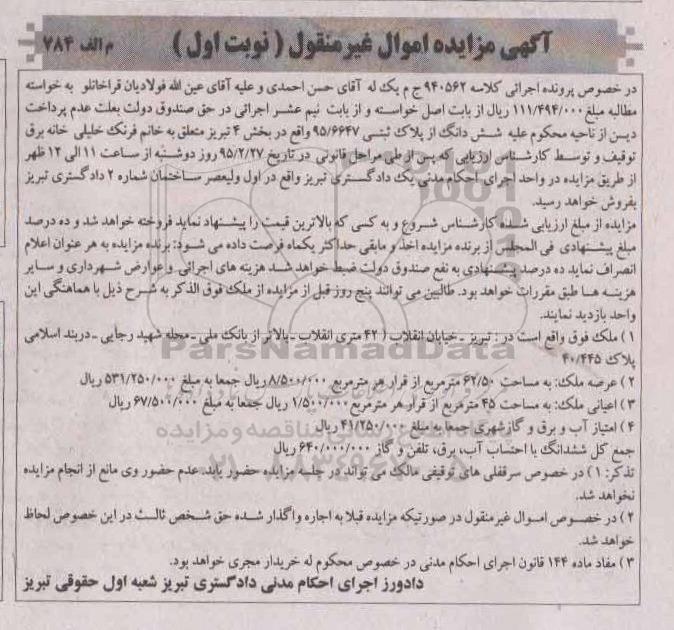 آگهی مزایده اموال غیر منقول ( نوبت اول ) م الف ۷۸۴
در خصوص پرونده اجرائی کلاسه ۹۴۰۵۶۲ ج م یک له آقای حسن احمدی و علیه آقای عین الله فولادیان قراخانلو به خواسته
مطالبه مبلغ ۱۱۱/۴۹۴/۰۰۰ ریال از بابت اصل خواسته و از بابت نیم عشر اجرائی در حق صندوق دولت بعلت عدم پرداخت
دین از ناحیه محکوم علیه شش دانگ از پلاک ثبتی ۹۵/۶۶۴۷ واقع در بخش ۴ تبریز متعلق به خانم فرنک خلیلی خانه برق
توقیف و توسط کارشناس ارزیابی که پس از طی مراحل قانونی در تاریخ ۹۵/۲/۲۷ روز دوشنبه از ساعت ۱۱ الی ۱۲ ظهر
از طریق مزایده در واحد اجرای احکام مدنی یک دادگستری تبریز واقع در اول ولیعصر ساختمان شماره ۲ دادگستری تبریز
بفروش خواهد رسید.
مزایده از مبلغ ارزیابی شده کارشناس شروع و به کسی که بالاترین قیمت را پیشنهاد نماید فروخته خواهد شد و ده درصد
مبلغ پیشنهادی فی المجلس از برنده مزایده اخذ و مابقی حداکثر یکماه فرصت داده می شود: برنده مزایده به هر عنوان اعلام
انصراف نماید ده درصد پیشنهادی به نفع صندوق دولت ضبط خواهد شد هزینه های اجرائی و عوارض شهرداری و سایر
هزینه ها طبق مقررات خواهد بود. طالبین می توانند پنج روز قبل از مزایده از ملک فوق الذکر به شرح ذیل با هماهنگی این
واحد بازدید نمایند.
۱ ) ملک فوق واقع است در : تبریز ـ خیابان انقلاب ( ۴۲ متری انقلاب ـ بالاتر از بانک ملی ـ محله شهید رجایی ـ دربند اسلامی
پلاک ۴۰/۴۴۵
ParsNamadData
۲ ) عرصه ملک: به مساحت ۶۲/۵۰ مترمربع از قرار هر مترمربع ۸/۵۰۰/۰۰۰ ریال جمعا به مبلغ ۵۳۱/۲۵۰/۰۰۰ ریال
۳ ) اعیانی ملک: به مساحت ۴۵ مترمربع از قرار هر مترمربع ۱/۵۰۰/۰۰۰ ریال جمعا به مبلغ ۶۷/۵۰۰/۰۰۰ ریال
۴ ) امتیاز آب و برق و گاز شهری جمعا به مبلغ ۴۱/۲۵۰/۰۰۰ ریال
جمع کل ششدانگ با احتساب آب، برق، تلفن و گاز ۶۴۰/۰۰۰/۰۰۰ ریال
تذکر: ۱ ) در خصوص سرقفلی های توقیفی مالک می تواند در جلسه مزایده حضور یابد. عدم حضور وی مانع از انجام مزایده
نخواهد شد.
۲ ) در خصوص اموال غیرمنقول در صورتیکه مزایده قبلا به اجاره واگذار شده حق شخص ثالث در این خصوص لحاظ
خواهد شد.
۳ ) مفاد ماده ۱۴۴ قانون اجرای احکام مدنی در خصوص محکوم له خریدار مجری خواهد بود.
دادورز اجرای احکام مدنی دادگستری تبریز شعبه اول حقوقی تبریز